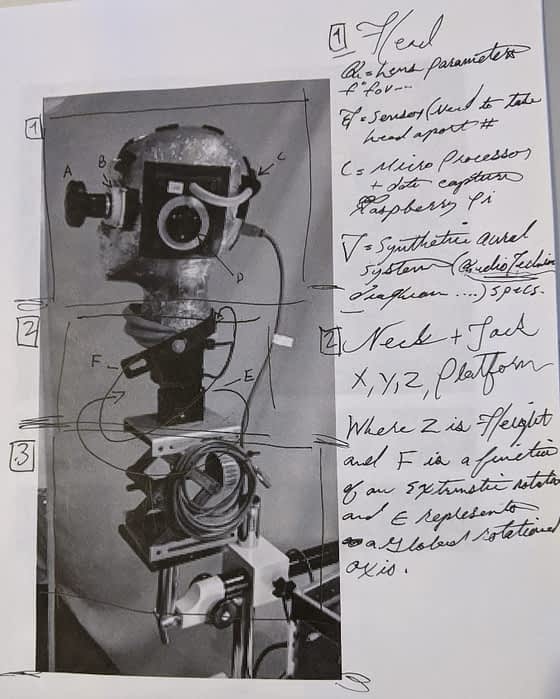 1 Head
= Lens parameters
f° fov...
= Sensor (need to take
head apart #
C = Micro Processor
+ data capture
Raspberry Pi
= Synthetic aural
system (
diagram ....) specs.
2 Neck + Jack
X, Y, Z, Platform
Where Z is Height
and F is a function
of an extrinsic rotation
and E represents
a Global rotational
axis.
1
A
B
C
D
2
F
E
3